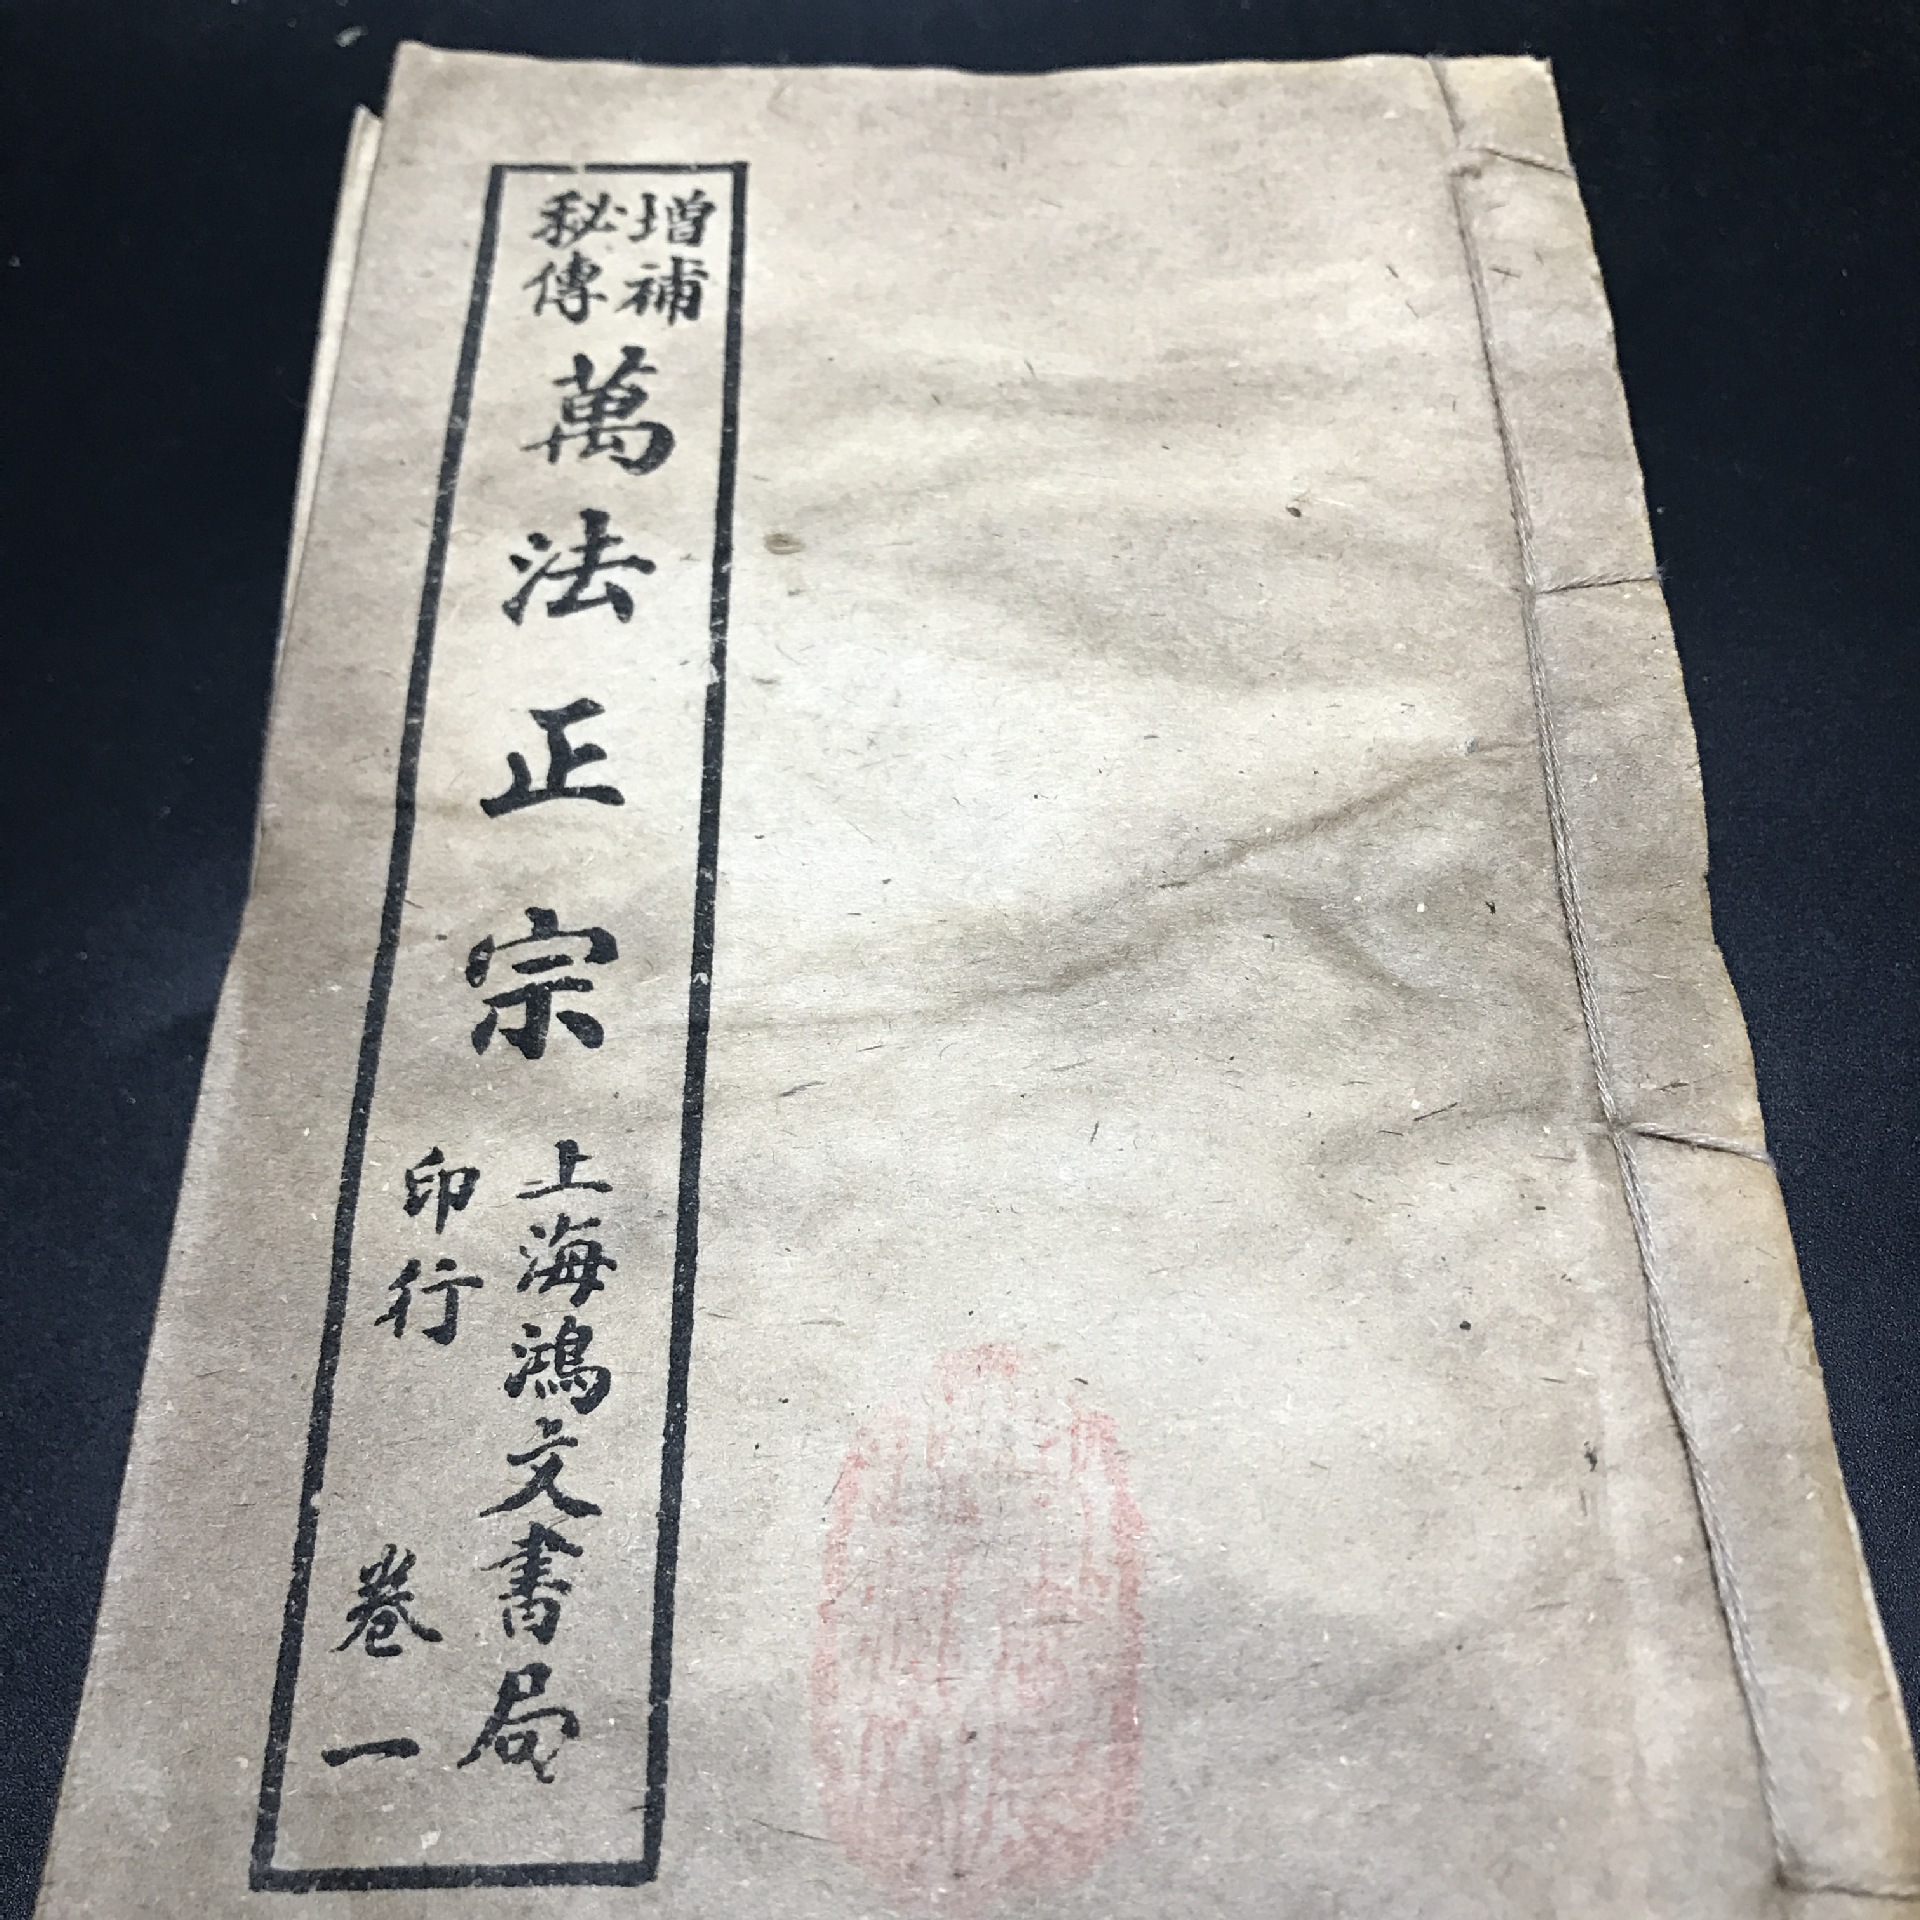 增補
秘傳
萬法正宗
上海鴻文書局
印行
卷一